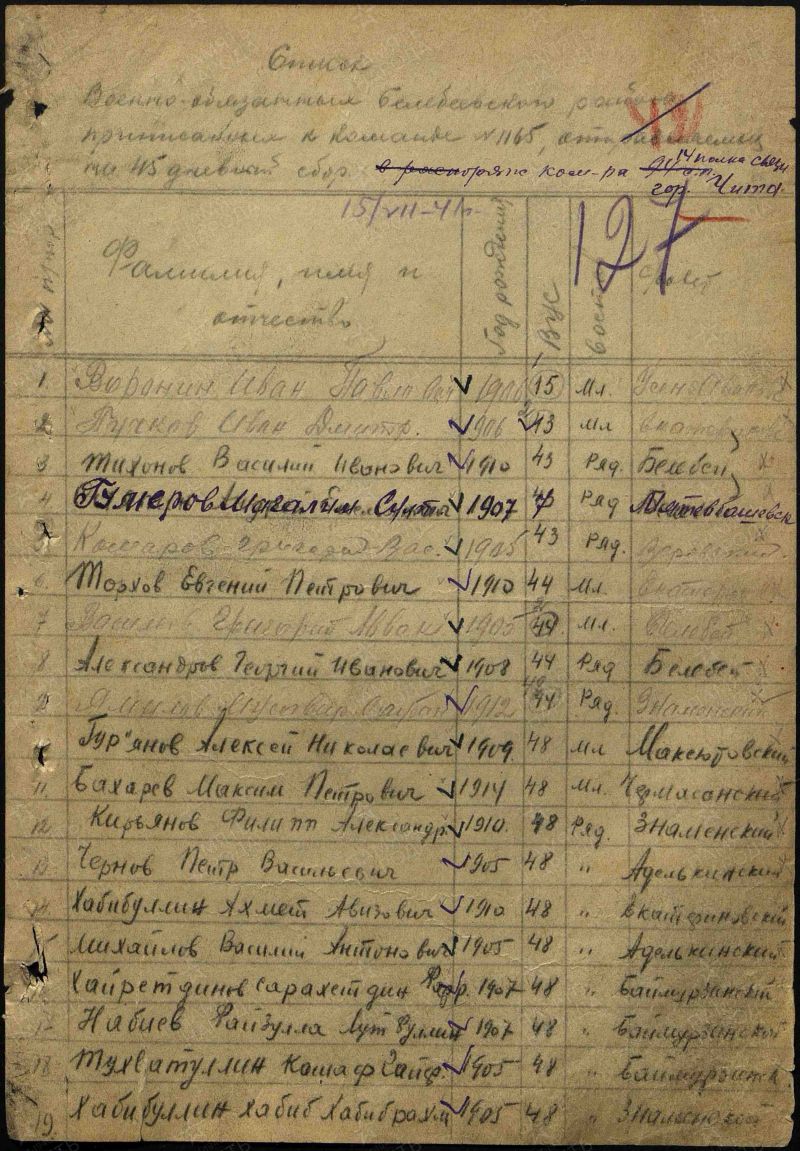 Список
Военно-обязанных Белебеевского района
приписанных к команде №1165, отправляемых
на 45 дневный сбор. в распоряж ком-ра 14 полка связи
гор. Чита.
15/VII-41г.
127
Фамилия, имя и отчество Год рождения ВУС Состав С/совет
1 Воронин Иван Павлович 1906 15 Мл.
2 Пучков Иван Дмитр. 1906 43 Мл
3 Тихонов Василий Иванович 1910 43 Ряд. Белебей
4 1907 Ряд
5 Комаров Григорий Вас. 1905 43 Ряд.
6 Торхов Евгений Петрович 1910 44 Мл.
7 Григорий Иван 1905 44 Мл. Белебей
8 Александров Георгий Иванович 1908 44 Ряд Белебей
9 1912 44 Ряд. Знаменский
Гурьянов Алексей Николаевич 1909 48 Мл Максютовский
11 Бахарев Максим Петрович 1914 48 Мл. Чермасанский
12 Кирьянов Филипп Александр. 1910 48 Ряд. Знаменский
13 Чернов Петр Васильевич 1905 48 " Аделькинский
14 Хабибуллин Ахмет Авизович 1910 48 " Екатериновский
15 Михайлов Василий Антонович 1905 48 " Аделькинский
Хайретдинов Сарахетдин 1907 48 " Баймурзинский
17 Набиев Файзулла Лутфуллин 1907 48 " Баймурзинский
18 Тухватуллин Кашаф Гайф. 1905 48 " Баймурзинск.
19. Хабибуллин Хабиб Хабибрахм 1905 48 " Знаменский